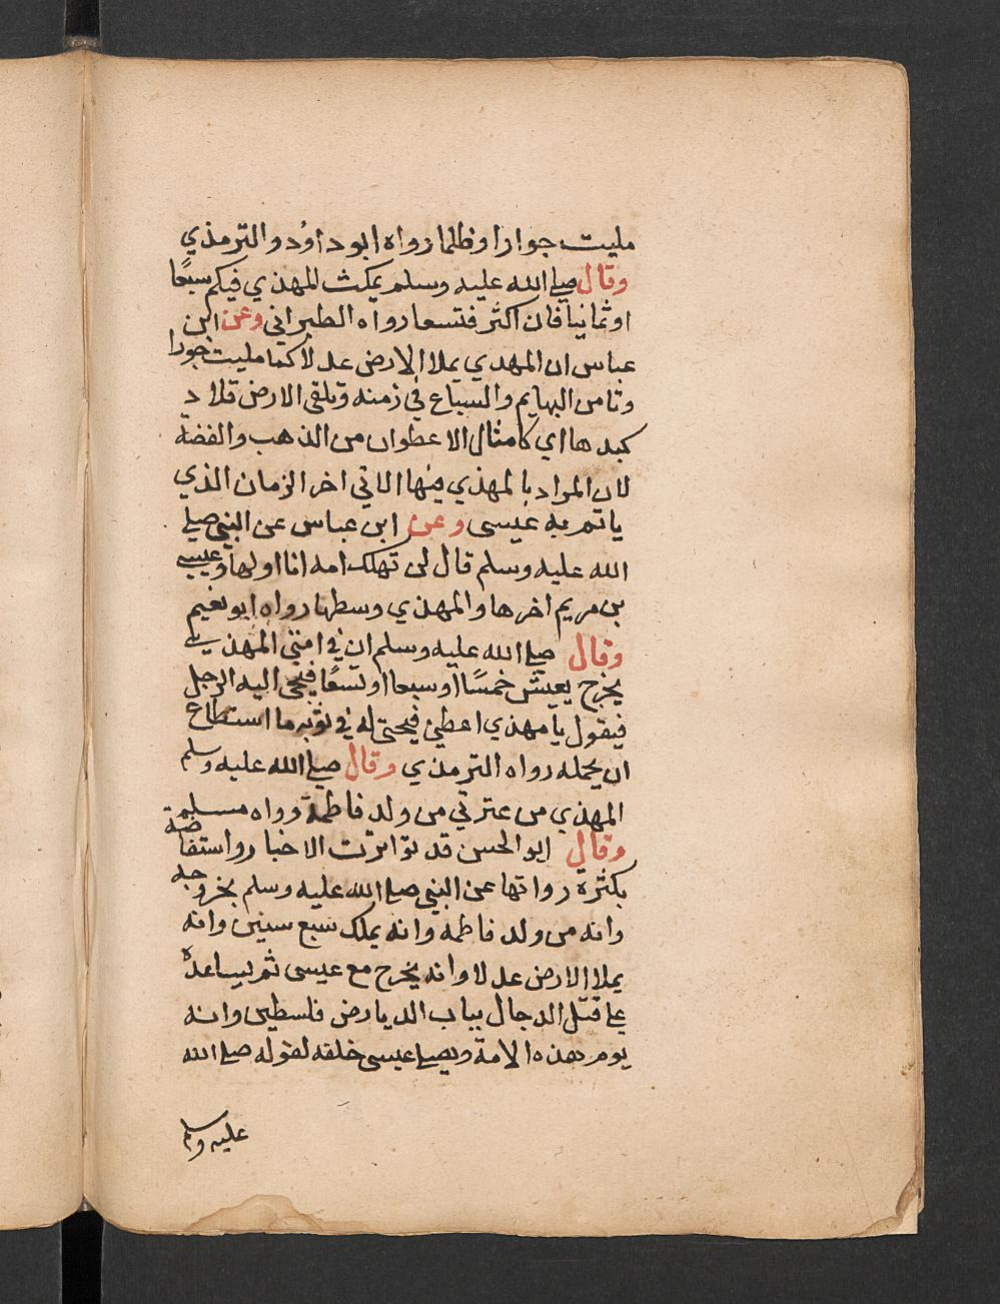 مليت جوارا وظلما رواه ابو داوُد والترمذي
وقال صلى الله عليه وسلم يمكث المهدي فيكم سبعًا
او ثمانيا فان اكثر فتسعا رواه الطبراني وعن ابن
عباس ان المهدي يملا الارض عدلا كما مليت جورا
وتامن البهايم والسباع في زمنه وتلقى الارض فلاد
كبدها اي كامثال الاعطوان من الذهب والفضة
لان المراد بالمهدي منها الاتي اخر الزمان الذي
ياتم به عيسى وعن ابن عباس عن النبي صلى
الله عليه وسلم قال لن تهلك امه انا اولها وعيسى
بن مريم اخرها والمهدي وسطها رواه ابو نعيم
وقال صلى الله عليه وسلم ان في امتي المهدي
يخرج يعيش خمسًا او سبعا او تسعًا فيجى اليه الرجل
فيقول يا مهدي اعطني فيحتى له في ثوبه ما استطاع
ان يحمله رواه الترمذي وقال صلى الله عليه وسلم
المهدي من عترتي من ولد فاطمة رواه مسلم
وقال ابو الحسن قد تواترت الاخبار واستفاضة
بكثرة رواتها عن النبي صلى الله عليه وسلم بخروجه
وانه من ولد فاطمه وانه يملك سبع سنين وانه
يملا الارض عدلا وانه يخرج مع عيسى ثم يساعده
على قتل الدجال بباب الد بارض فلسطين وانه
يوم هذه الامة ويصلي عيسى خلفه لقوله صلى الله
عليه وسلم